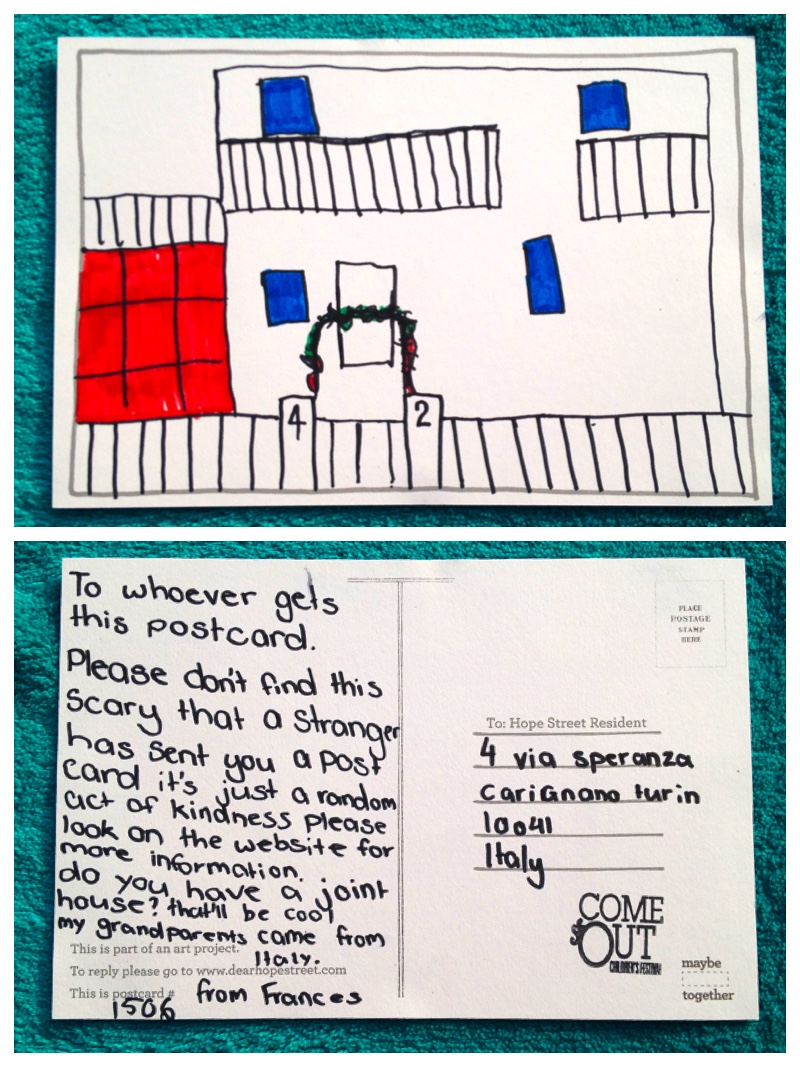 4
2
To whoever gets
this postcard.
Please don't find this
Scary that a stranger
has sent you a post
card it's just a random
act of kindness please
look on the website for
more information.
do you have a joint
house? that'll be cool
my grandparents came from
Italy.
This is part of an art project.
To reply please go to www.dearhopestreet.com
This is postcard #
1506
from Frances
PLACE
POSTAGE
STAMP
HERE
To: Hope Street Resident
4 via speranza
cariGnano turin
10041
Italy
COME
OUT
CHILDREN'S FESTIVAL
maybe
together